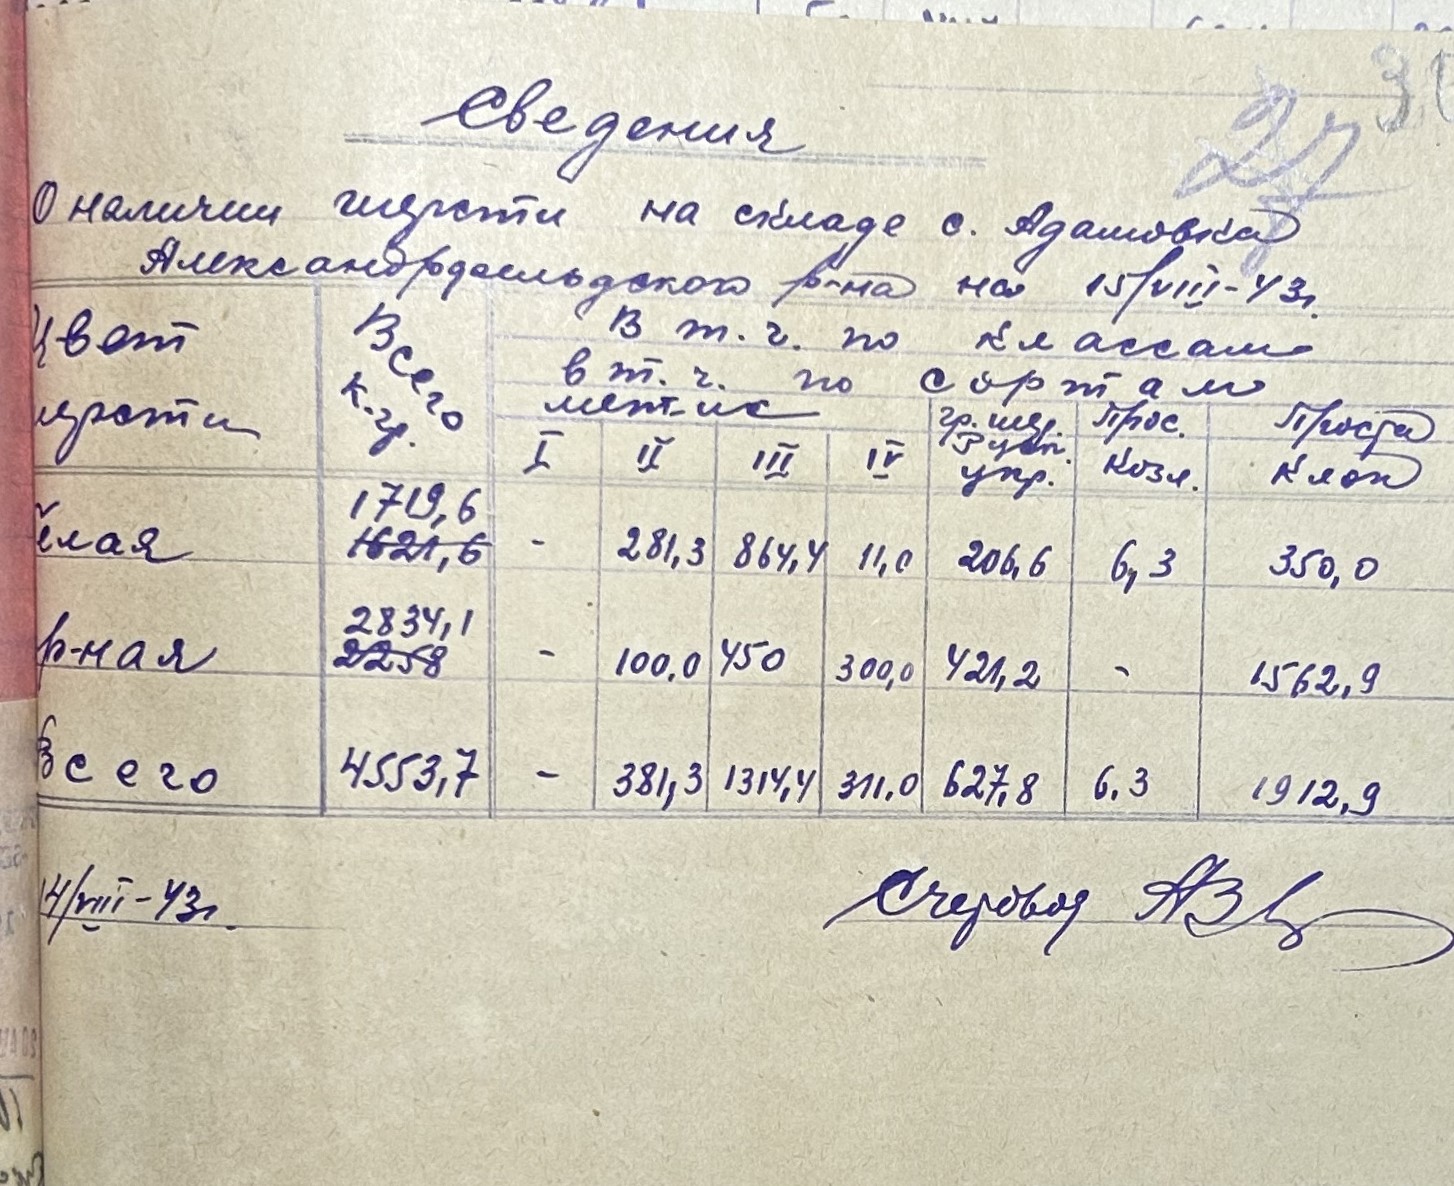 30
27
Сведения
О наличии шерсти на складе с. Адамовка
Александрфельдского р-на на 15/VIII-43г.
Цвет шерсти Всего к-гр. В т.ч. по классам
в т.ч. по сортам
I II III IV гр. шер. упр. Прос. козл. Проста клоп
елая 1719,6 - 281,3 864,4 11,0 206,6 6,3 350,0
1621,6
р-ная 2834,1 - 100,0 450 300,0 421,2 - 1562,9
2258
Всего 4553,7 - 381,3 1314,4 311,0 627,8 6.3 1912,9
14/VIII-43г. Счетовод